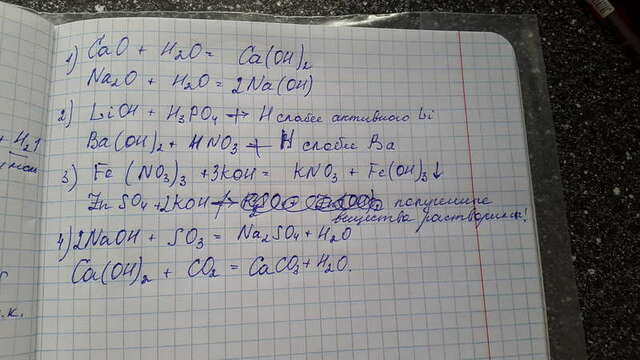 1) CaO + H₂O = Ca(OH)₂
Na₂O + H₂O = 2Na(OH)
2) LiOH + H₃PO₄ ↛ H слабее активного Li
Ba(OH)₂ + HNO₃ ↛ H слабее Ba
+ H₂↑
3) Fe(NO₃)₃ + 3KOH = KNO₃ + Fe(OH)₃↓
ZnSO₄ + 2KOH ↛ полученные
вещества растворимы!
4) 2NaOH + SO₃ = Na₂SO₄ + H₂O
Ca(OH)₂ + CO₂ = CaCO₃ + H₂O.
т.к.